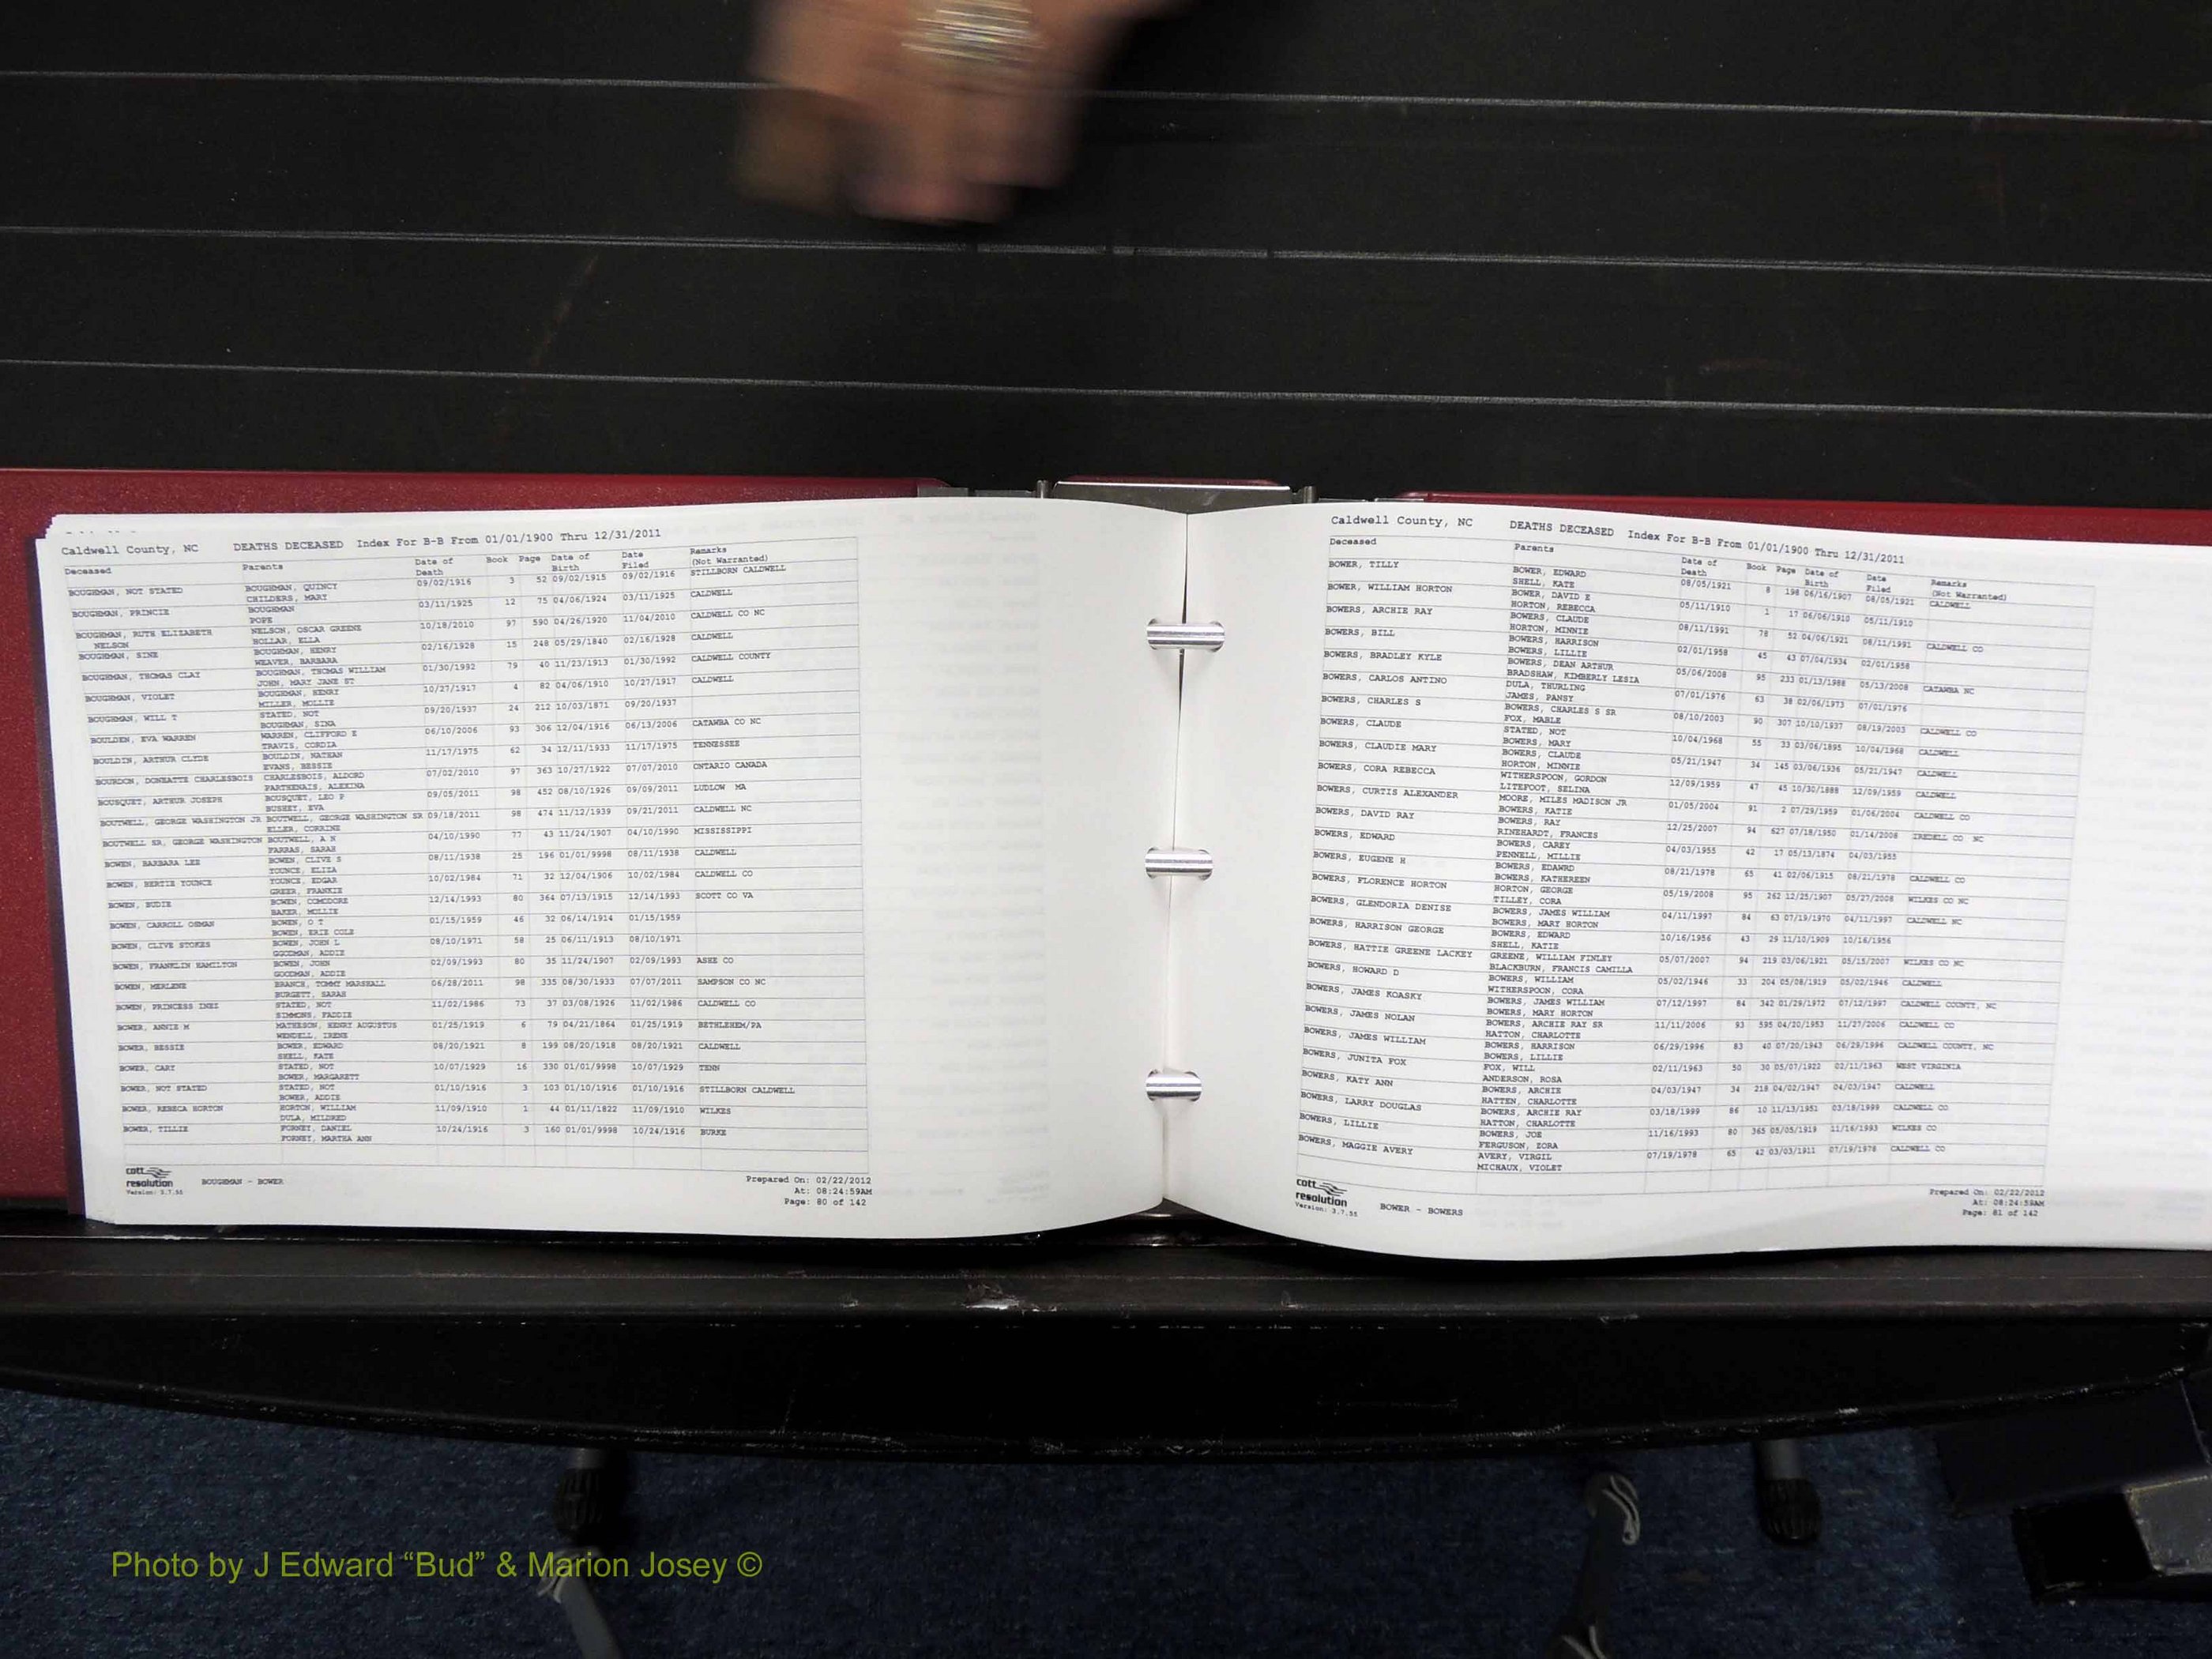 Caldwell County, NC DEATHS DECEASED Index For B-B From 01/01/1900 Thru 12/31/2011
Deceased Parents Date of Death Book Page Date of Birth Date Filed Remarks (Not Warranted)
BOUGHMAN, NOT STATED BOUGHMAN, QUINCY 09/02/1916 3 52 09/02/1915 09/02/1916 STILLBORN CALDWELL
CHILDERS, MARY
BOUGHMAN, PRINCIE BOUGHMAN 03/11/1925 12 75 04/06/1924 03/11/1925 CALDWELL
POPE
BOUGHMAN, RUTH ELIZABETH NELSON, OSCAR GREENE 10/18/2010 97 590 04/26/1920 11/04/2010 CALDWELL CO NC
NELSON HOLLAR, ELLA
BOUGHMAN, SINE BOUGHMAN, HENRY 02/16/1928 15 248 05/29/1840 02/16/1928 CALDWELL
WEAVER, BARBARA
BOUGHMAN, THOMAS CLAY BOUGHMAN, THOMAS WILLIAM 01/30/1992 79 40 11/23/1913 01/30/1992 CALDWELL COUNTY
JOHN, MARY JANE ST
BOUGHMAN, VIOLET BOUGHMAN, HENRY 10/27/1917 4 82 04/06/1910 10/27/1917 CALDWELL
MILLER, MOLLIE
BOUGHMAN, WILL T STATED, NOT 09/20/1937 24 212 10/03/1871 09/20/1937
BOUGHMAN, SINA
BOULDEN, EVA WARREN WARREN, CLIFFORD E 06/10/2006 93 306 12/04/1916 06/13/2006 CATAWBA CO NC
TRAVIS, CORDIA
BOULDIN, ARTHUR CLYDE BOULDIN, NATHAN 11/17/1975 62 34 12/11/1933 11/17/1975 TENNESSEE
EVANS, BESSIE
BOURDON, DONEATTE CHARLESBOIS CHARLESBOIS, ALDORD 07/02/2010 97 363 10/27/1922 07/07/2010 ONTARIO CANADA
PARTHENAIS, ALEXINA
BOUSQUET, ARTHUR JOSEPH BOUSQUET, LEO P 09/05/2011 98 452 08/10/1926 09/09/2011 LUDLOW MA
BUSHEY, EVA
BOUTWELL, GEORGE WASHINGTON JR BOUTWELL, GEORGE WASHINGTON SR 09/18/2011 98 474 11/12/1939 09/21/2011 CALDWELL NC
ELLER, CORRINE
BOUTWELL SR, GEORGE WASHINGTON BOUTWELL, A N 04/10/1990 77 43 11/24/1907 04/10/1990 MISSISSIPPI
FARRAS, SARAH
BOWEN, BARBARA LEE BOWEN, CLIVE S 08/11/1938 25 196 01/01/9998 08/11/1938 CALDWELL
YOUNCE, ELIZA
BOWEN, BERTIE YOUNCE YOUNCE, EDGAR 10/02/1984 71 32 12/04/1906 10/02/1984 CALDWELL CO
GREER, FRANKIE
BOWEN, BUDIE BOWEN, COMODORE 12/14/1993 80 364 07/13/1915 12/14/1993 SCOTT CO VA
BAKER, MOLLIE
BOWEN, CARROLL OSMAN BOWEN, O T 01/15/1959 46 32 06/14/1914 01/15/1959
BOWEN, ERIE COLE
BOWEN, CLIVE STOKES BOWEN, JOHN L 08/10/1971 58 25 06/11/1913 08/10/1971
GOODMAN, ADDIE
BOWEN, FRANKLIN HAMILTON BOWEN, JOHN 02/09/1993 80 35 11/24/1907 02/09/1993 ASHE CO
GOODMAN, ADDIE
BOWEN, MERLENE BRANCH, TOMMY MARSHALL 06/28/2011 98 335 08/30/1933 07/07/2011 SAMPSON CO NC
BURGETT, SARAH
BOWEN, PRINCESS INEZ STATED, NOT 11/02/1986 73 37 03/08/1926 11/02/1986 CALDWELL CO
SIMMONS, FADDIE
BOWER, ANNIE M MATHESON, HENRY AUGUSTUS 01/25/1919 6 79 04/21/1864 01/25/1919 BETHLEHEM/PA
WENDELL, IRENE
BOWER, BESSIE BOWER, EDWARD 08/20/1921 8 199 08/20/1918 08/20/1921 CALDWELL
SHELL, KATE
BOWER, CARY STATED, NOT 10/07/1929 16 330 01/01/9998 10/07/1929 TENN
BOWER, MARGARETT
BOWER, NOT STATED STATED, NOT 01/10/1916 3 103 01/10/1916 01/10/1916 STILLBORN CALDWELL
BOWER, ADDIE
BOWER, REBECA HORTON HORTON, WILLIAM 11/09/1910 1 44 01/11/1822 11/09/1910 WILKES
DULA, MILDRED
BOWER, TILLIE FORNEY, DANIEL 10/24/1916 3 160 01/01/9998 10/24/1916 BURKE
FORNEY, MARTHA ANN
cott resolution Version: 3.7.55
BOUGHMAN - BOWER
Prepared On: 02/22/2012
At: 08:24:59AM
Page: 80 of 142
Caldwell County, NC DEATHS DECEASED Index For B-B From 01/01/1900 Thru 12/31/2011
Deceased Parents Date of Death Book Page Date of Birth Date Filed Remarks (Not Warranted)
BOWER, TILLY BOWER, EDWARD 08/05/1921 8 198 06/16/1907 08/05/1921 CALDWELL
SHELL, KATE
BOWER, WILLIAM HORTON BOWER, DAVID E 05/11/1910 1 17 06/06/1910 05/11/1910
HORTON, REBECCA
BOWERS, ARCHIE RAY BOWERS, CLAUDE 08/11/1991 78 52 04/06/1921 08/11/1991 CALDWELL CO
HORTON, MINNIE
BOWERS, BILL BOWERS, HARRISON 02/01/1958 45 43 07/04/1934 02/01/1958
BOWERS, LILLIE
BOWERS, BRADLEY KYLE BOWERS, DEAN ARTHUR 05/06/2008 95 233 01/13/1988 05/13/2008 CATAWBA NC
BRADSHAW, KIMBERLY LESIA
BOWERS, CARLOS ANTINO DULA, THURLING 07/01/1976 63 38 02/06/1973 07/01/1976
JAMES, PANSY
BOWERS, CHARLES S BOWERS, CHARLES S SR 08/10/2003 90 307 10/10/1937 08/19/2003 CALDWELL CO
FOX, MABLE
BOWERS, CLAUDE STATED, NOT 10/04/1968 55 33 03/06/1895 10/04/1968 CALDWELL
BOWERS, MARY
BOWERS, CLAUDIE MARY BOWERS, CLAUDE 05/21/1947 34 145 03/06/1936 05/21/1947 CALDWELL
HORTON, MINNIE
BOWERS, CORA REBECCA WITHERSPOON, GORDON 12/09/1959 47 45 10/30/1888 12/09/1959 CALDWELL
LITEFOOT, SELINA
BOWERS, CURTIS ALEXANDER MOORE, MILES MADISON JR 01/05/2004 91 2 07/29/1959 01/06/2004 CALDWELL CO
BOWERS, KATIE
BOWERS, DAVID RAY BOWERS, RAY 12/25/2007 94 627 07/18/1950 01/14/2008 IREDELL CO NC
RINEHARDT, FRANCES
BOWERS, EDWARD BOWERS, CAREY 04/03/1955 42 17 05/13/1874 04/03/1955
PENNELL, MILLIE
BOWERS, EUGENE H BOWERS, EDAWRD 08/21/1978 65 41 02/06/1915 08/21/1978 CALDWELL CO
BOWERS, KATHEREEN
BOWERS, FLORENCE HORTON HORTON, GEORGE 05/19/2008 95 262 12/25/1907 05/27/2008 WILKES CO NC
TILLEY, CORA
BOWERS, GLENDORIA DENISE BOWERS, JAMES WILLIAM 04/11/1997 84 63 07/19/1970 04/11/1997 CALDWELL NC
BOWERS, MARY HORTON
BOWERS, HARRISON GEORGE BOWERS, EDWARD 10/16/1956 43 29 11/10/1909 10/16/1956
SHELL, KATIE
BOWERS, HATTIE GREENE LACKEY GREENE, WILLIAM FINLEY 05/07/2007 94 219 03/06/1921 05/15/2007 WILKES CO NC
BLACKBURN, FRANCIS CAMILLA
BOWERS, HOWARD D BOWERS, WILLIAM 05/02/1946 33 204 05/08/1919 05/02/1946 CALDWELL
WITHERSPOON, CORA
BOWERS, JAMES KOASKY BOWERS, JAMES WILLIAM 07/12/1997 84 342 01/29/1972 07/12/1997 CALDWELL COUNTY, NC
BOWERS, MARY HORTON
BOWERS, JAMES NOLAN BOWERS, ARCHIE RAY SR 11/11/2006 93 595 04/20/1953 11/27/2006 CALDWELL CO
HATTON, CHARLOTTE
BOWERS, JAMES WILLIAM BOWERS, HARRISON 06/29/1996 83 40 07/20/1943 06/29/1996 CALDWELL COUNTY, NC
BOWERS, LILLIE
BOWERS, JUNITA FOX FOX, WILL 02/11/1963 50 30 05/07/1922 02/11/1963 WEST VIRGINIA
ANDERSON, ROSA
BOWERS, KATY ANN BOWERS, ARCHIE 04/03/1947 34 218 04/02/1947 04/03/1947 CALDWELL
HATTEN, CHARLOTTE
BOWERS, LARRY DOUGLAS BOWERS, ARCHIE RAY 03/18/1999 86 10 11/13/1951 03/18/1999 CALDWELL CO
HATTON, CHARLOTTE
BOWERS, LILLIE BOWERS, JOE 11/16/1993 80 365 05/05/1919 11/16/1993 WILKES CO
FERGUSON, ZORA
BOWERS, MAGGIE AVERY AVERY, VIRGIL 07/19/1978 65 42 03/03/1911 07/19/1978 CALDWELL CO
MICHAUX, VIOLET
cott resolution Version: 3.7.55
BOWER - BOWERS
Prepared On: 02/22/2012
At: 08:24:59AM
Page: 81 of 142
Photo by J Edward “Bud” & Marion Josey ©